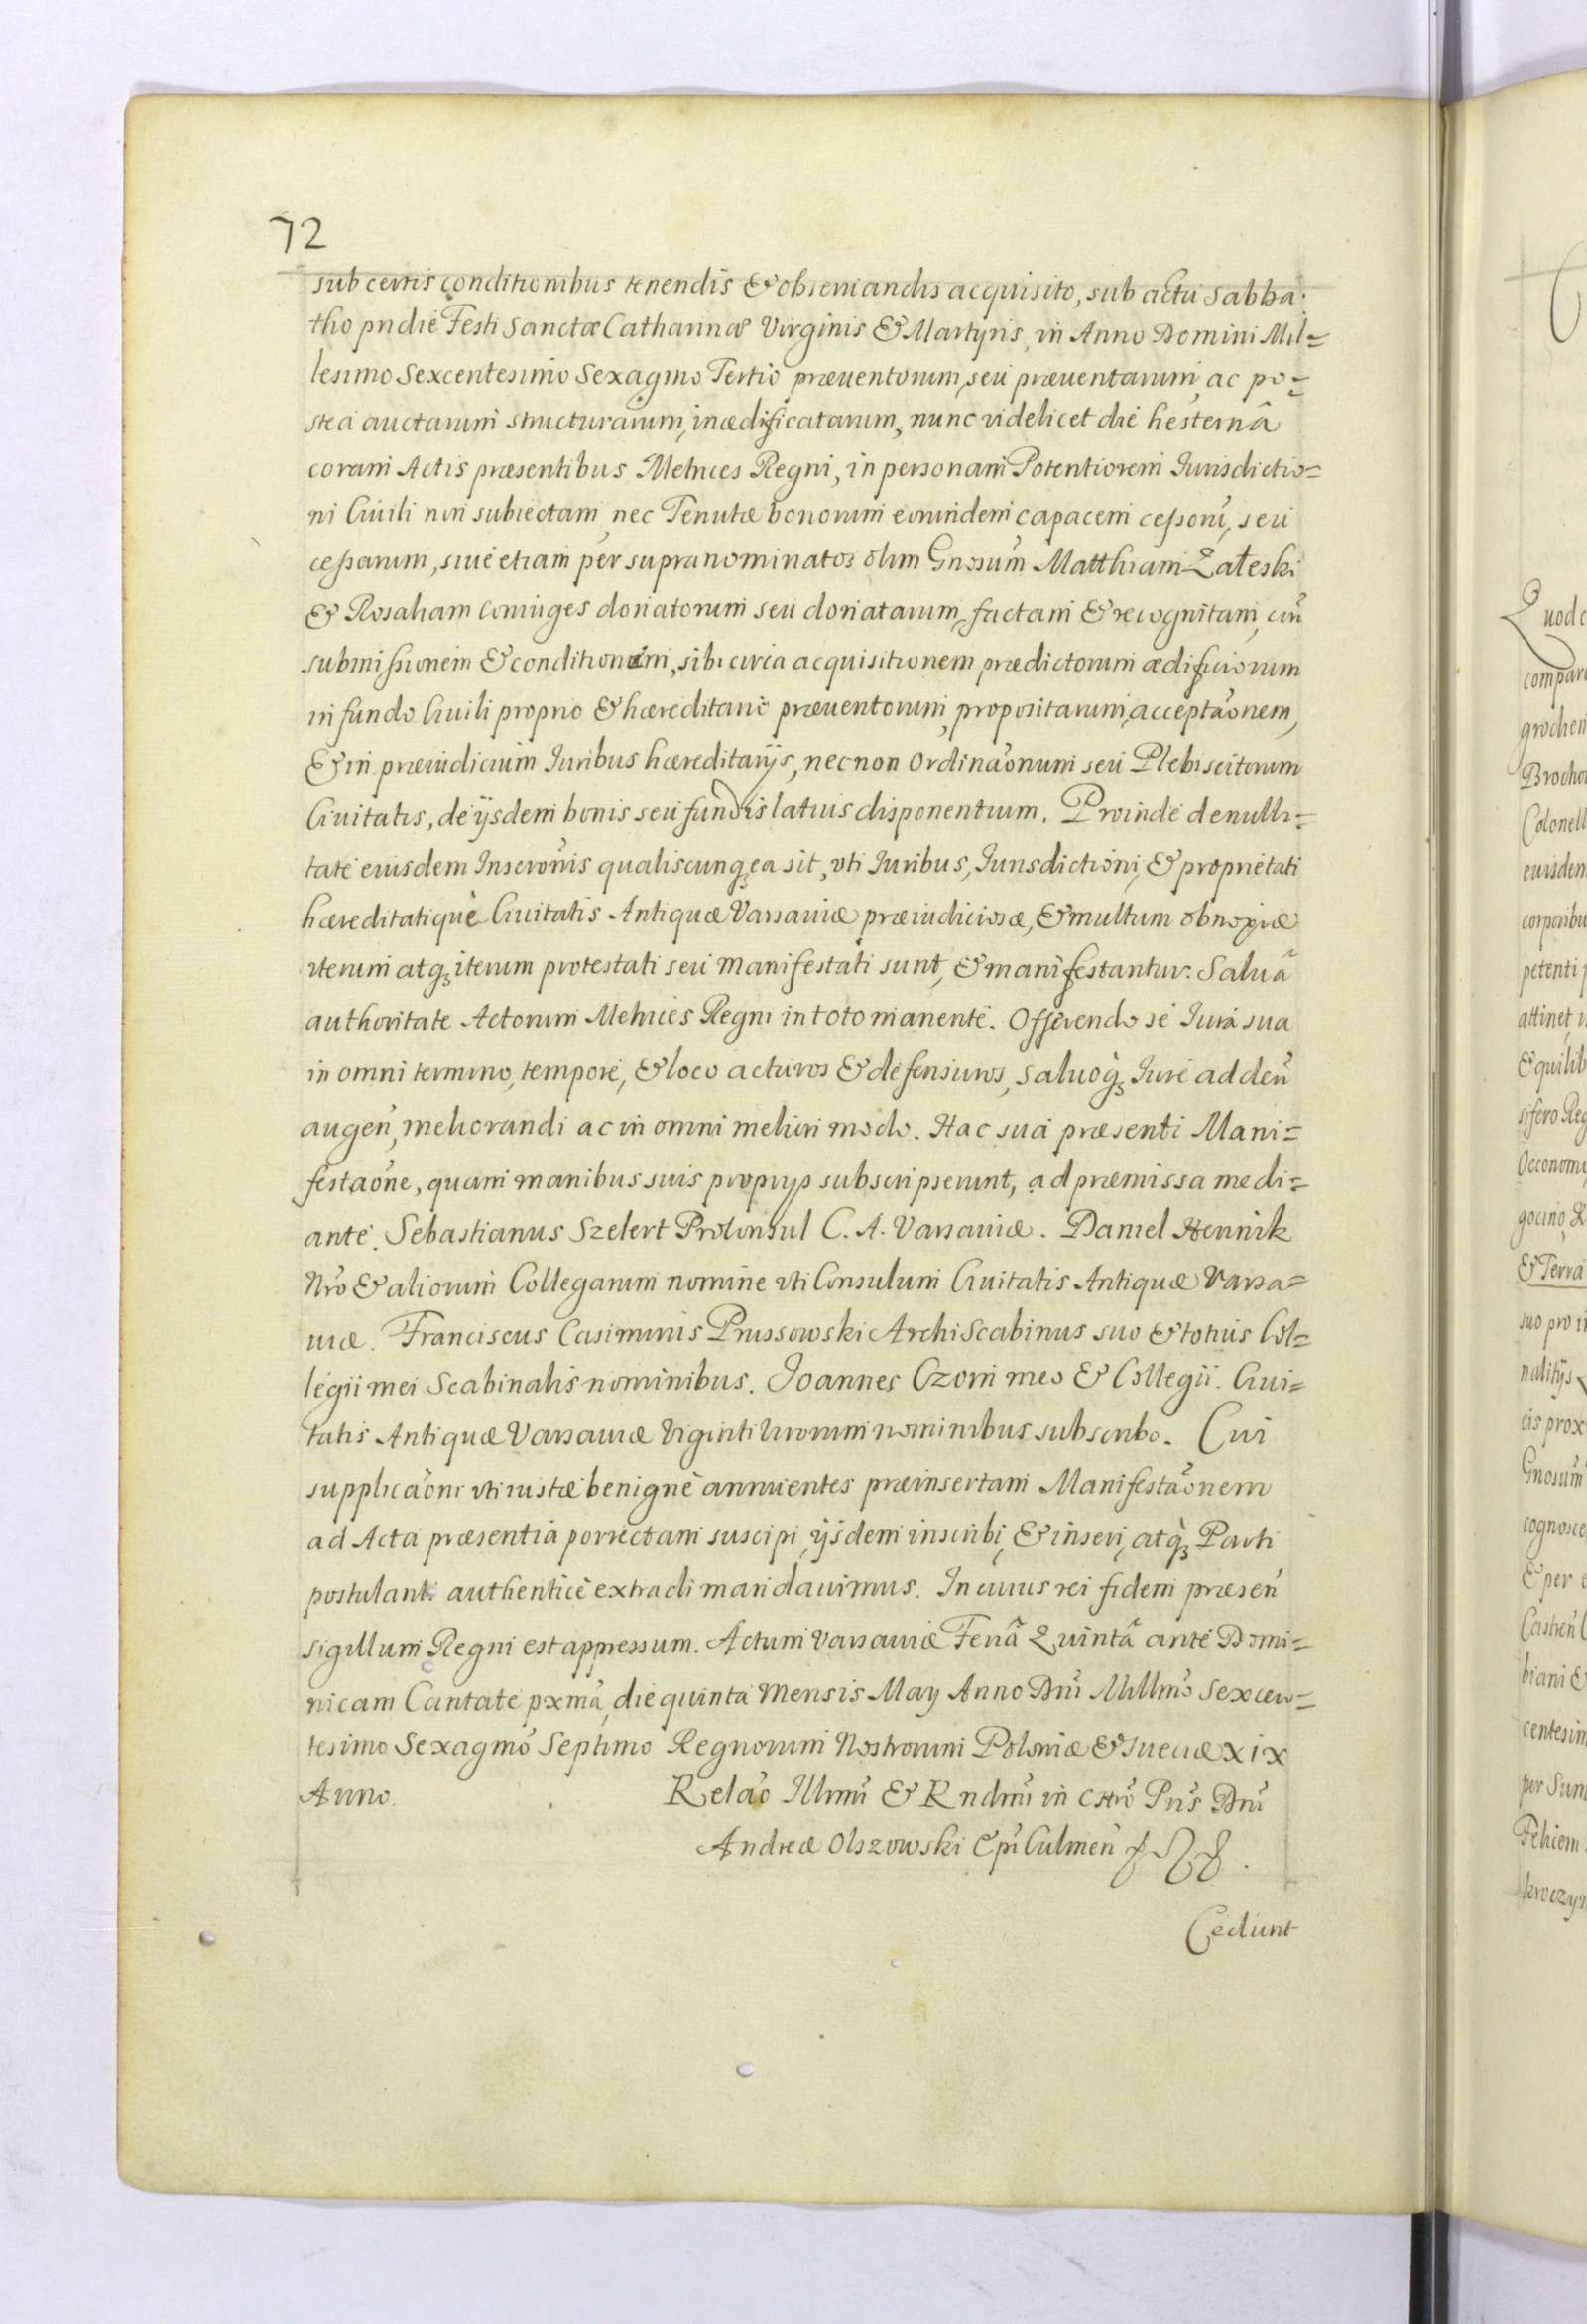 72
sub certis conditionibus tenendis & obseruandis acquisito, sub actu Sabba:
tho pridie Festi Sanctæ Catharinæ Virginis & Martyris, in Anno Domini Mil=
lesimo Sexcentesimo Sexagmo Tertio præuentorum, seu præuentarum, ac po=
stea auctarum structurarum, inædificatarum, nunc videlicet die hesternâ
coram Actis præsentibus Metrices Regni, in personam Potentiorem Iurisdictio=
ni Ciuili non subiectam, nec Tenutæ bonorum eorundem capacem cessorũ, seu
cessarum, siue etiam per supranominatos olim Gnosum Matthiam Załeski
& Rosaliam coniuges donatorum seu donatarum, factam & recognitam, cũ
submissionem & conditionum, sibi circa acquisitionem prædictorum ædificiorum
in fundo Ciuili proprio & hæreditario præuentorum, propositarum, acceptãonem,
& in præiudicium Iuribus hæreditarijs, necnon Ordinãonum seu Plebiscitorum
Ciuitatis, de ijsdem bonis seu fundis latius disponentium. Proinde de nulli=
tate eiusdem Inscrõnis qualiscunq; ea sit, vti Iuribus, Iurisdictioni, & proprietati
hæreditatiquè Ciuitatis Antiquæ Varsauiæ præiudiciosæ, & multum obnoxiæ
iterum atq; iterum protestati seu manifestati sunt, & manifestantur. Saluâ
authoritate Actorum Metrices Regni in toto manente. Offerendo se Iura sua
in omni termino, tempore, & loco acturos & defensuros, saluoq; Iure addeñ
augeñ, meliorandi ac in omni meliori modo. Hac sua præsenti Mani=
festaõne, quam manibus suis proprijs subscripserunt, ad præmissa medi=
ante. Sebastianus Szelert Proconsul C. A. Varsauiæ. Daniel Hennik
Nrõ & aliorum Collegarum nomine vti Consulum Ciuitatis Antiquæ Varsa=
uiæ. Franciscus Casimirus Prussowski ArchiScabinus suo & totius Col=
legii mei Scabinalis nominibus. Ioannes Czom meo & Collegii Ciui=
tatis Antiquæ Varsauiæ Vigintiuirorum nominibus subscribo. Cui
supplicãoni vti iustæ benignè annuentes præinsertam Manifestãonem
ad Acta præsentia porrectam suscipi, ijsdem inscribi, & inseri, atq; Parti
postulanti authenticè extradi mandauimus. In cuius rei fidem præseñ
sigillum Regni est appressum. Actum Varsauiæ Feriâ Quintâ ante Domi=
nicam Cantate pxmã, die quinta Mensis May Anno Dnĩ Millmõ Sexcen=
tesimo Sexagmõ Septimo Regnorum Nostrorum Poloniæ & Sueciæ XIX
Anno. Relaõ Illmĩ & Rndmĩ in Chrõ Pris Dnĩ
Andreæ Olszowski Epĩ Culmeñ
Cediunt